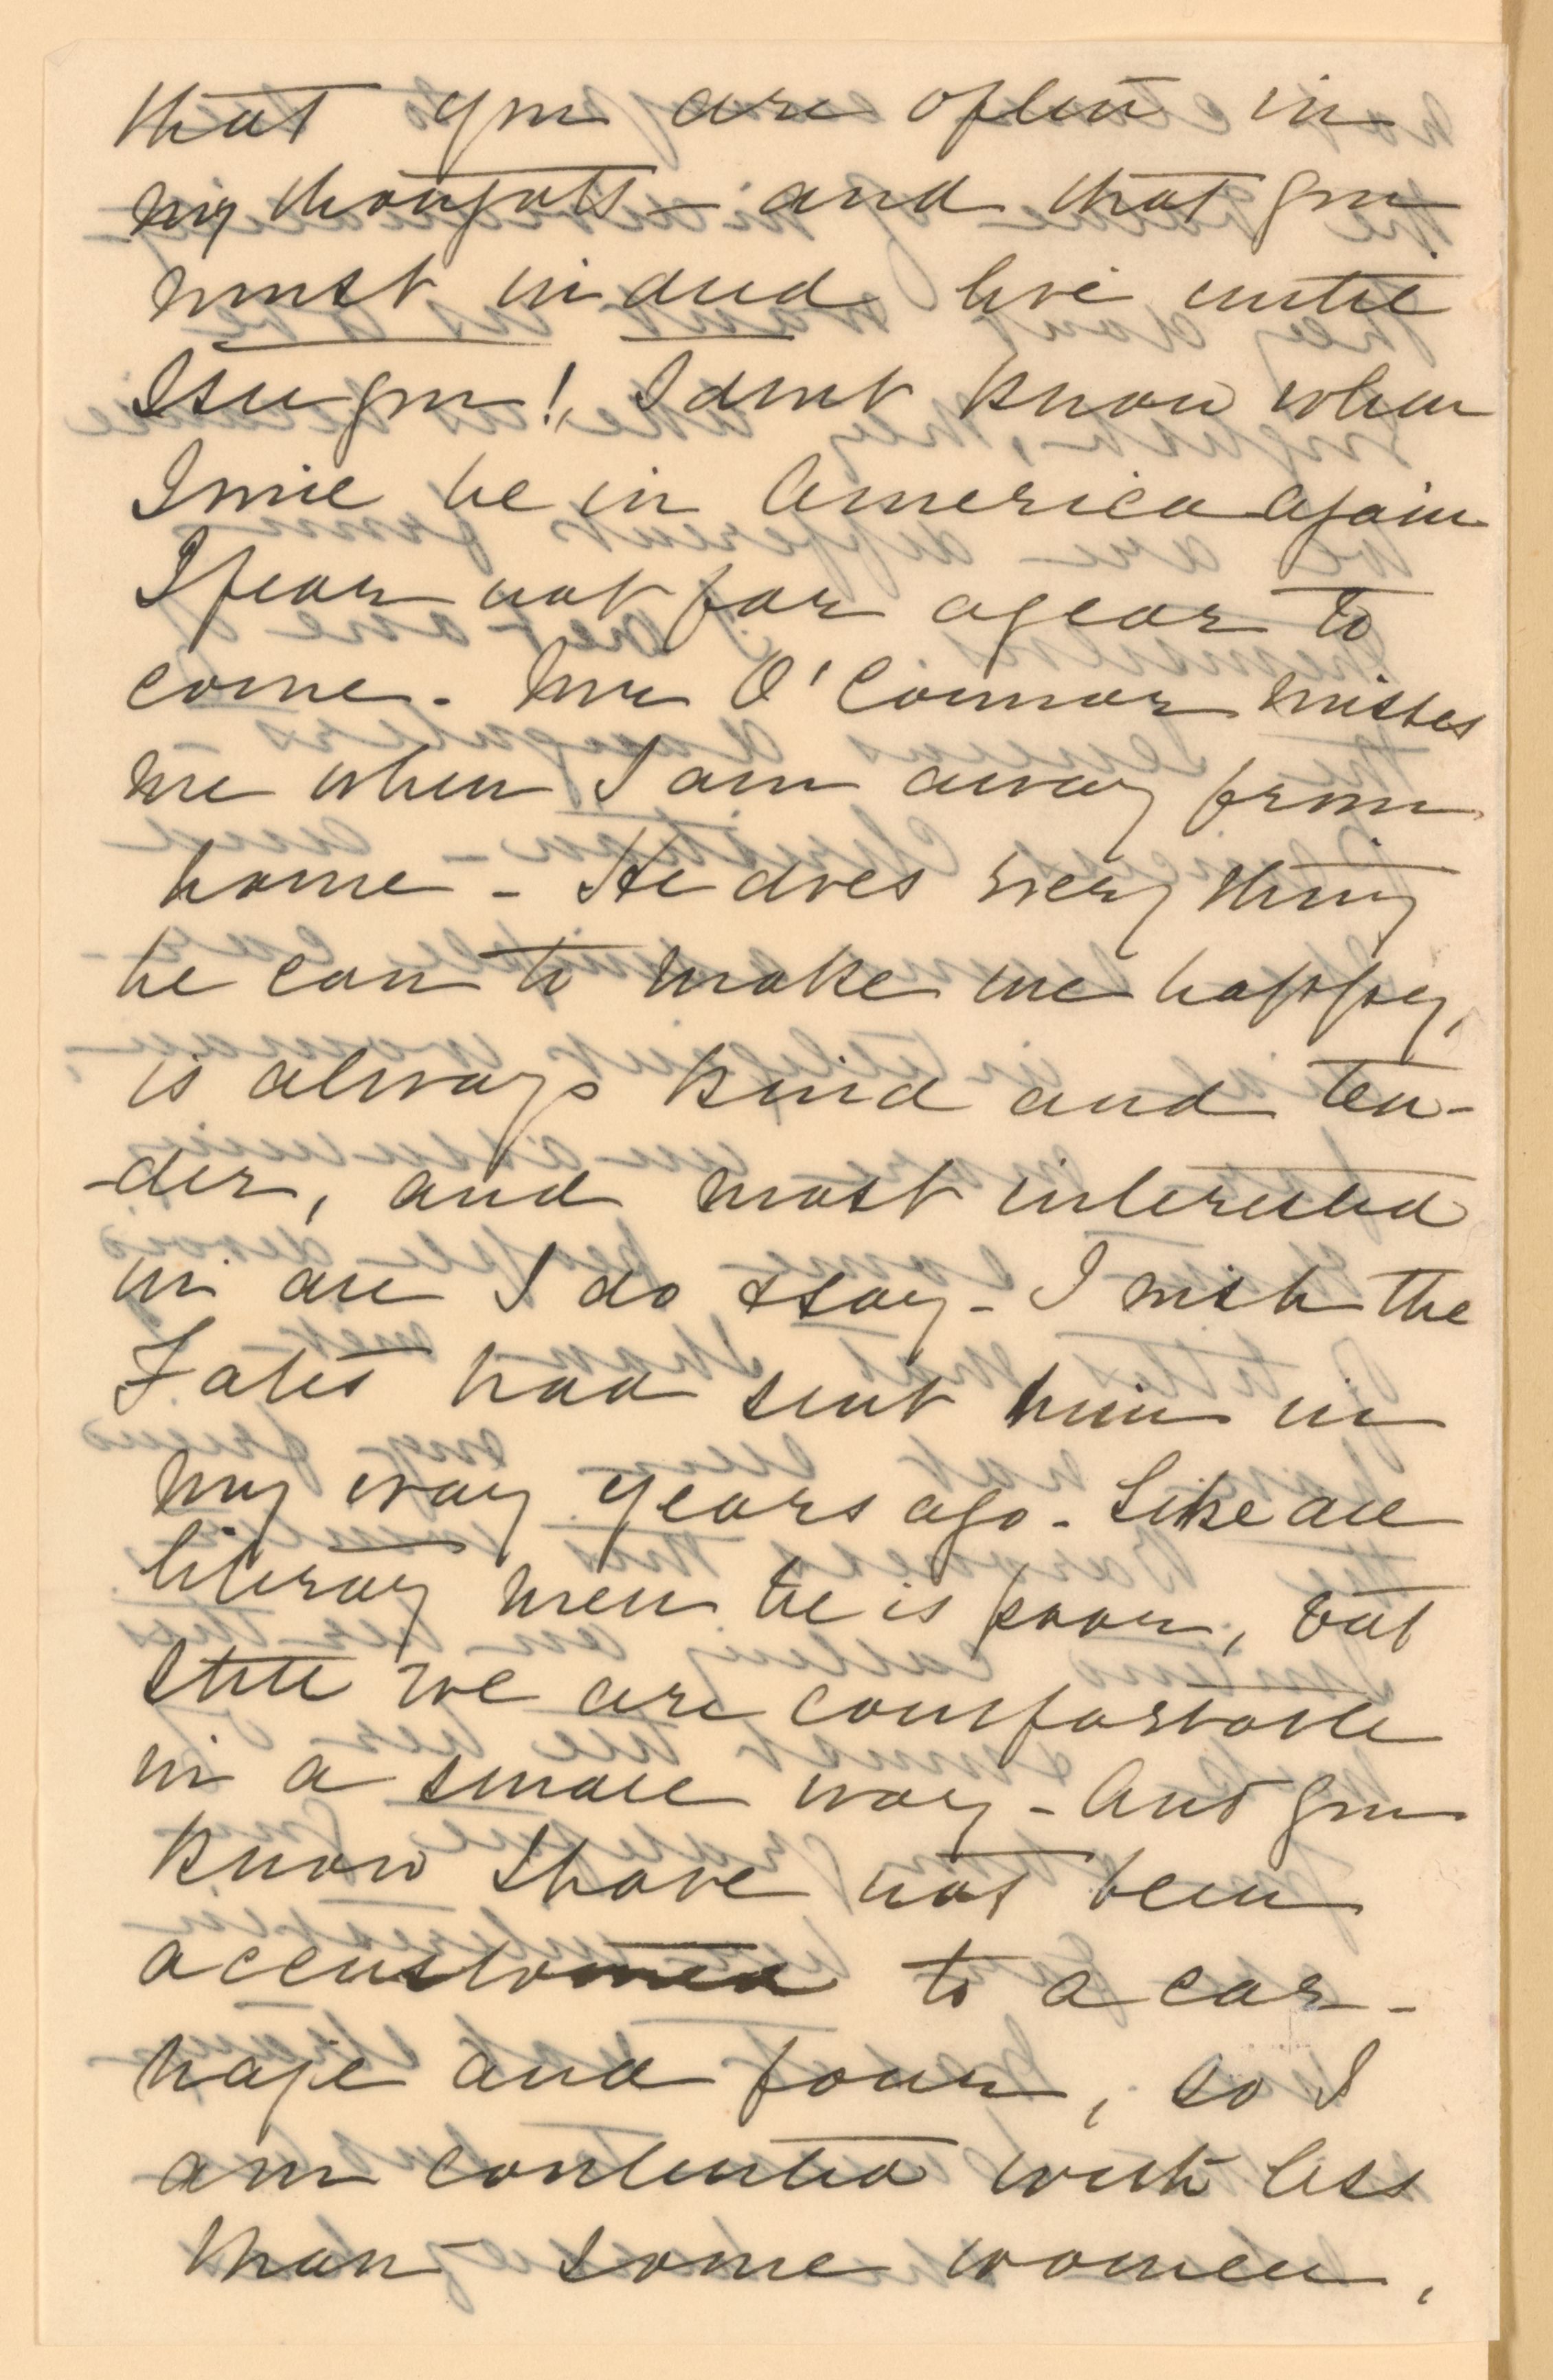 that you are often in
my thoughts – and that you
must indeed live until
I see you! I dont know when
I will be in America again
I fear not for a year to
come. Mr O'Connor misses
me when I am away from
home – He does every thing
he can to make me happy,
is always kind and ten-
-der, and most interested
in all I do & say – I wish the
Fates had sent him in
my way years ago – Like all
literary men he is poor, but
still we are comfortable
in a small way – And you
know I have not been
accustomed to a car-
riage and four, so I
am contented with less
than some women,